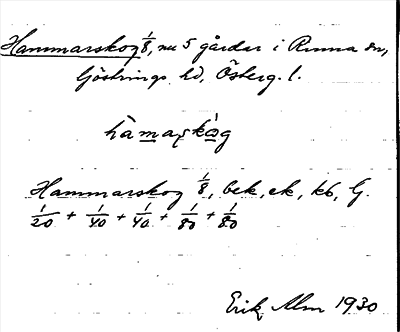 Hammarskog 1/8, nu 5 gårdar i Rinna sn,
Göstrings hd, Österg. l.
hàmaʂkåg
Hammarskog 1/8, bek, ek, kb, G.
1/20 + 1/40 + 1/40 + 1/80 + 1/80
Erik Alm 1930